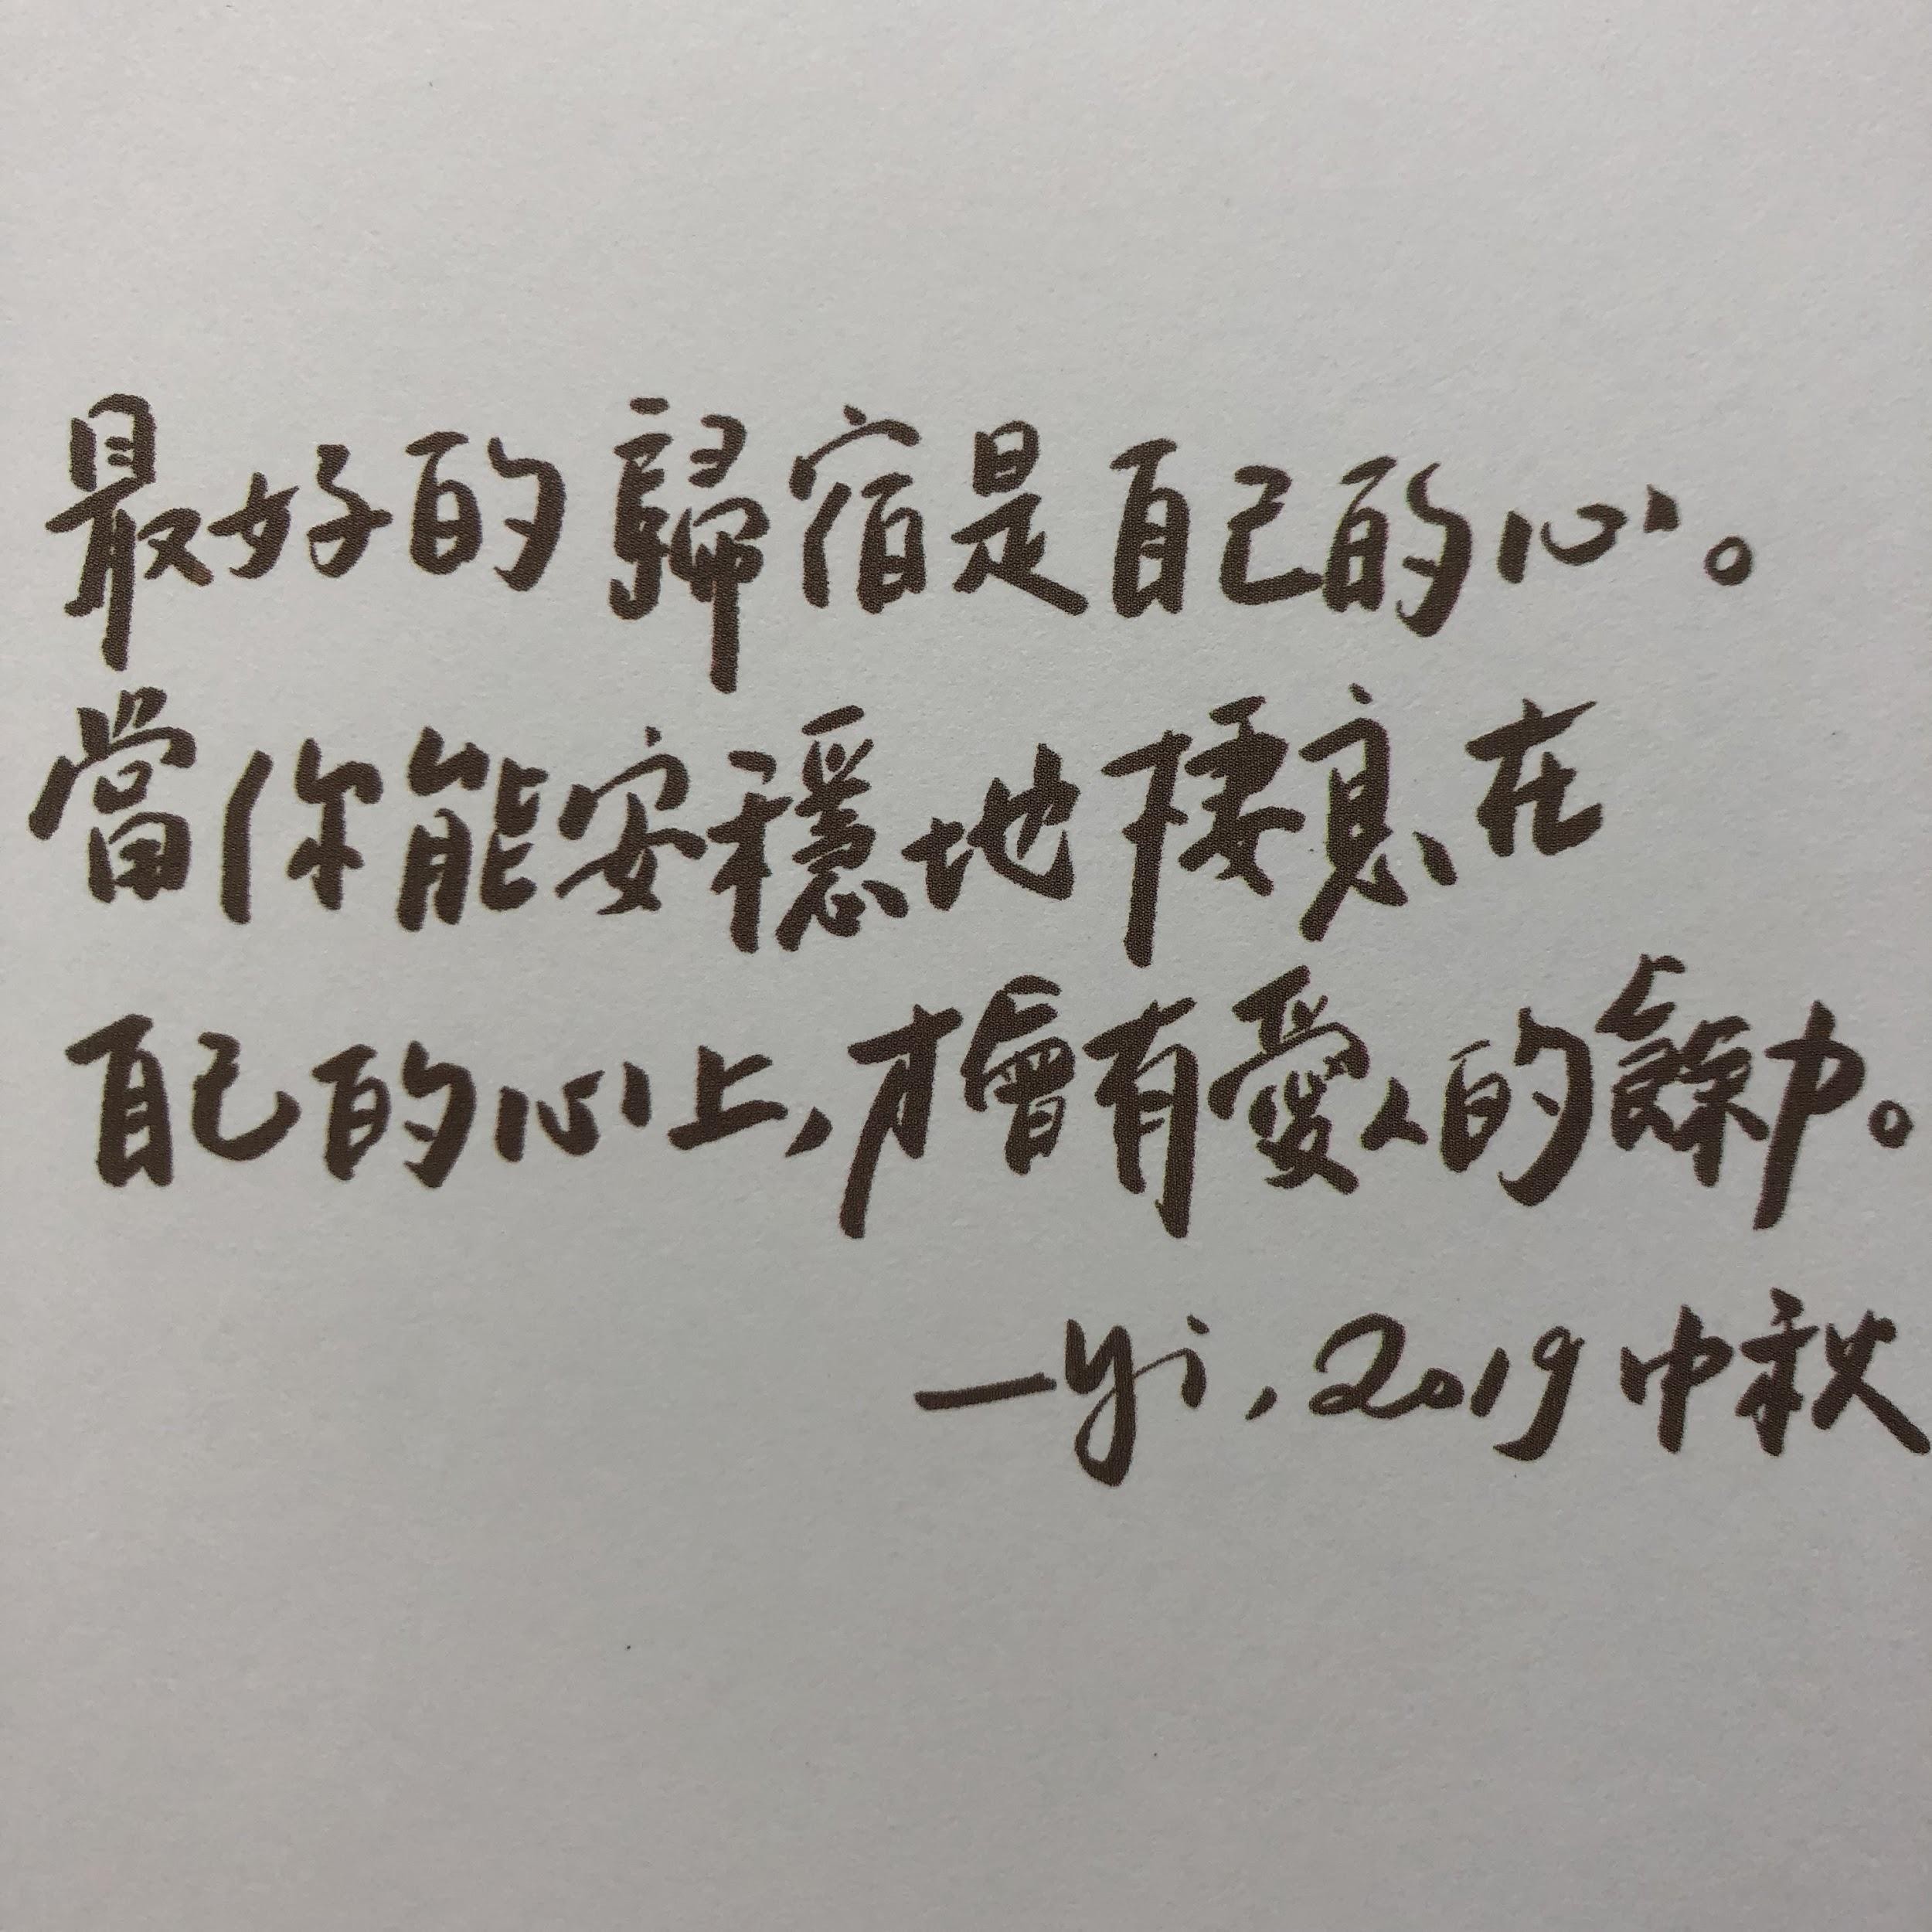 最好的歸宿是自己的心。
當你能安穩地棲息在
自己的心上,才會有愛人的餘力。
—yi,2019中秋